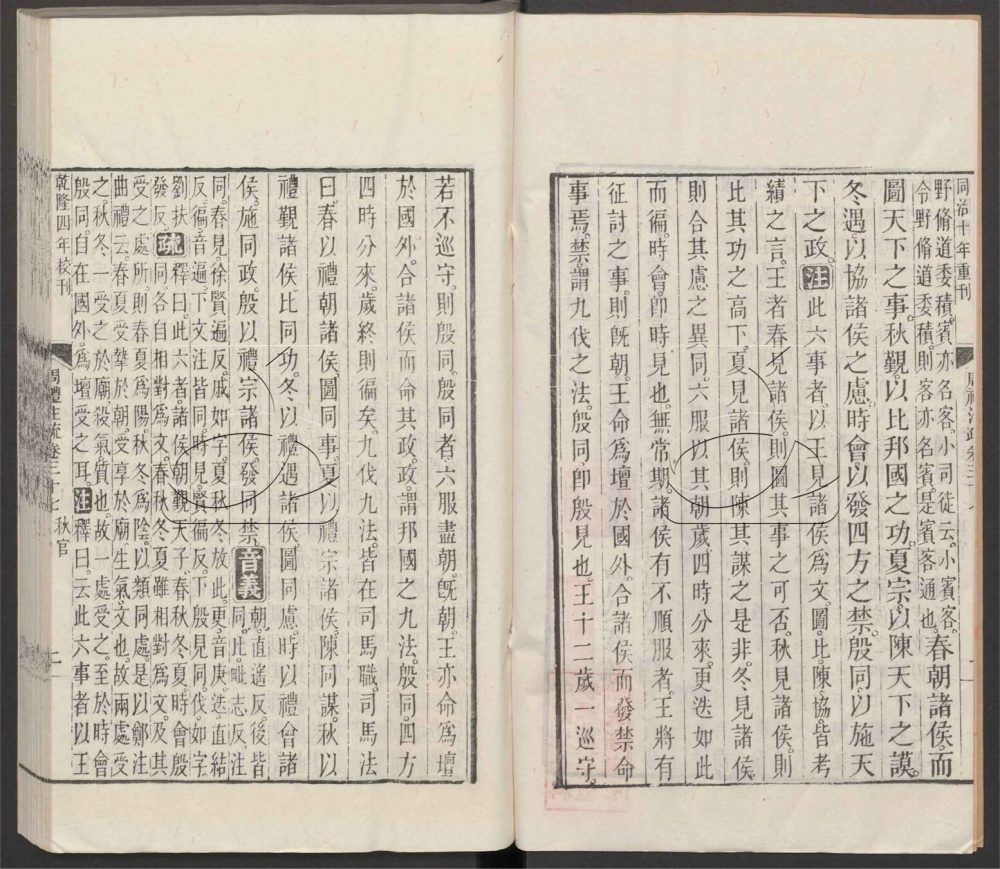 同治十年重刊
野脩道委積賓亦名客小司徒云小賓客
令野脩道委積則客亦名賓是賓客通也
春朝諸侯而
圖天下之事秋覲以比邦國之功夏宗以陳天下之謨
冬遇以協諸侯之慮時會以發四方之禁殷同以施天
下之政注此六事者以王見諸侯爲文圖比陳協皆考
績之言王者春見諸侯則圖其事之可否秋見諸侯則
比其功之高下夏見諸侯則陳其謀之是非冬見諸侯
則合其慮之異同六服以其朝歲四時分來更迭如此
而徧時會卽時見也無常期諸侯有不順服者王將有
征討之事則旣朝王命爲壇於國外合諸侯而發禁命
事焉禁謂九伐之法殷同卽殷見也王十二歲一巡守
若不巡守則殷同殷同者六服盡朝旣朝王亦命爲壇
於國外合諸侯而命其政政謂邦國之九法殷同四方
四時分來歲終則徧矣九伐九法皆在司馬職司馬法
曰春以禮朝諸侯圖同事夏以禮宗諸侯陳同謀秋以
禮覲諸侯比同功冬以禮遇諸侯圖同慮時以禮會諸
侯施同政殷以禮宗諸侯發同禁音義
朝直遙反後皆
同此毗志反注
同春見徐賢遍反戚如字夏秋冬放此更音庚迭直結
反徧音遍下文注皆同時見賢徧反下殷見同伐如字
劉扶
發反
疏
釋曰此六者諸侯朝覲天子春秋冬夏時會殷
同各自相對爲文春秋冬夏雖相對爲文及其
受之處所則春夏爲陽秋冬爲陰以類同處是以鄭注
曲禮云春夏受摯於朝受享於廟生氣文也故兩處受
之秋冬一受之於廟殺氣質也故一處受之至於時會
殷同自在國外爲壇受之耳注釋曰云此六事者以王
乾隆四年校刊
周禮注疏卷三十七 秋官
二